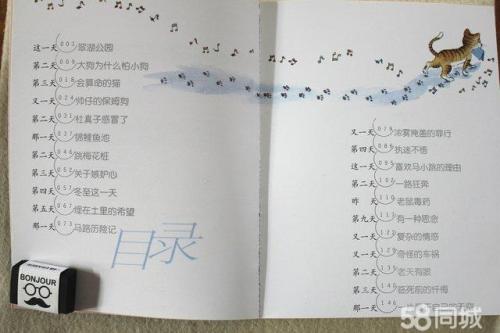 这一天 003 翠湖公园
第二天 009 大狗为什么怕小狗
第三天 018 会算命的猫
又一天 024 帅仔的保姆狗
第二天 031 杜真子感冒了
那一天 037 锦鲤鱼池
第二天 046 跳梅花桩
第三天 052 关于嫉妒心
第四天 057 冬至这一天
第五天 067 埋在土里的希望
那一天 073 马路历险记
目录
又一天 079 浓雾掩盖的罪行
第四天 086 执迷不悟
这一天 095 喜欢马小跳的理由
第二天 102 一路狂奔
昨天 110 老鼠毒药
第九天 有一种思念
又一天 复杂的情感
又一天 奇怪的车祸
第二天 老天有眼
第三天 临死前的忏悔
那一天 146
BONJOUR
58同城